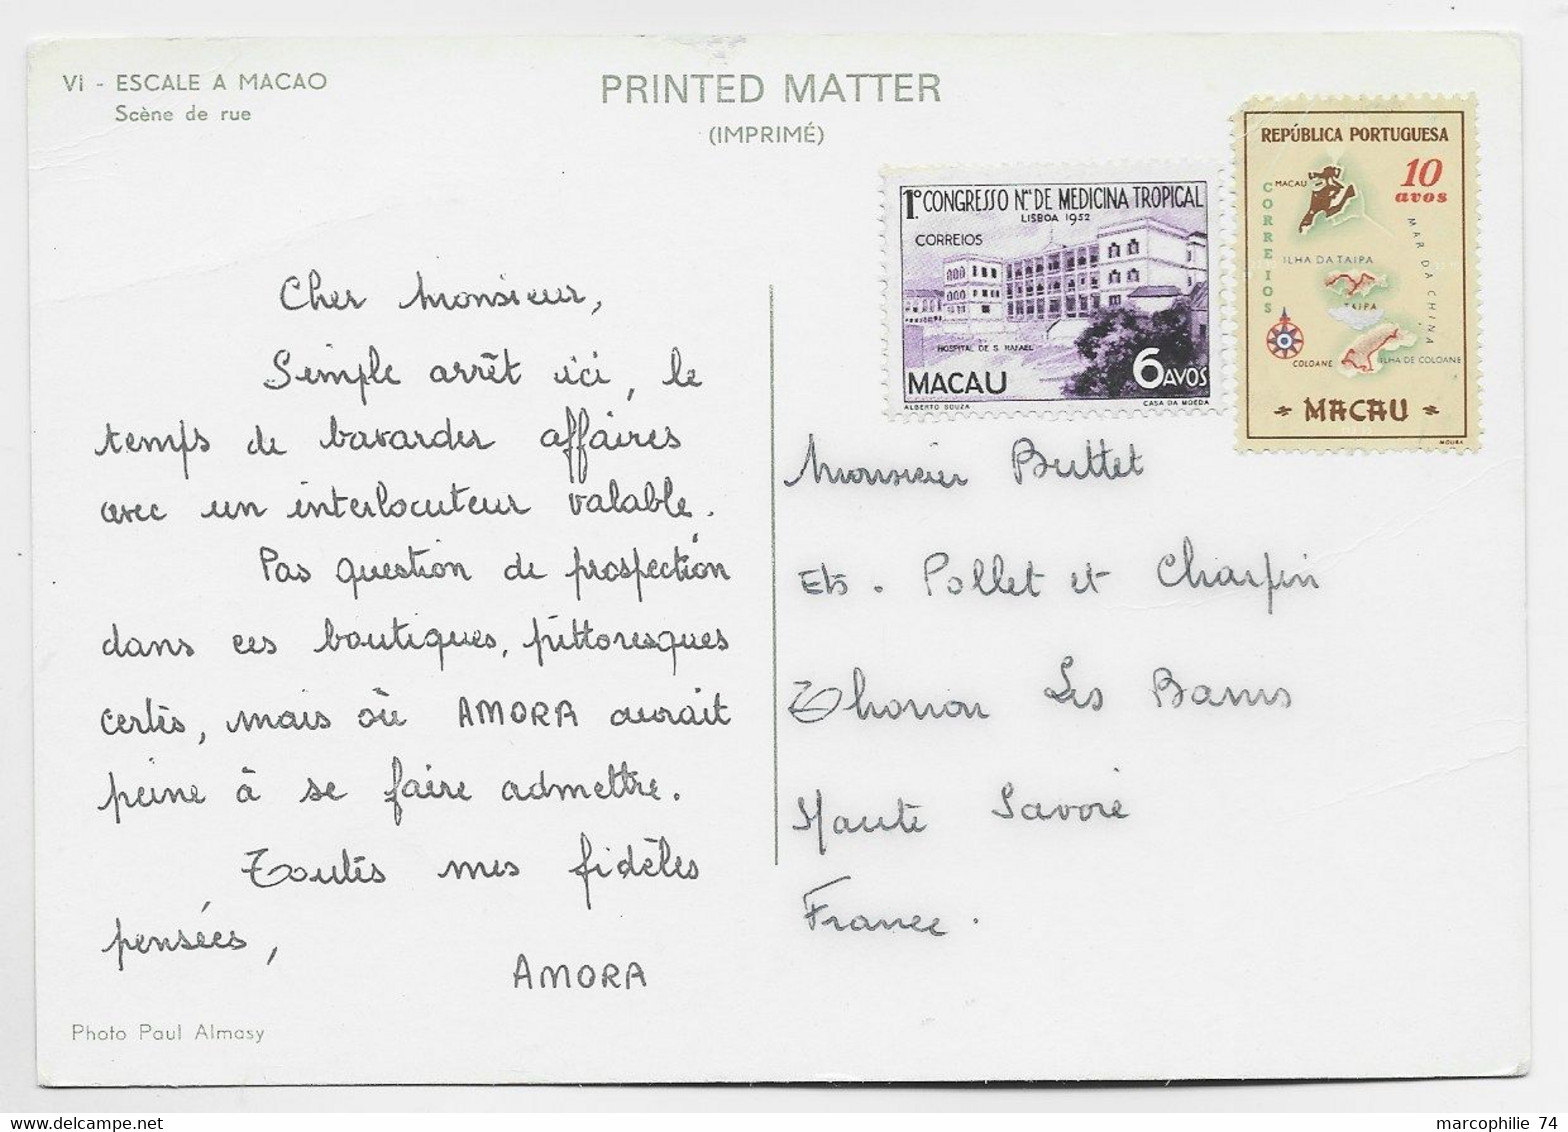 VI - ESCALE A MACAO
Scène de rue
PRINTED MATTER
(IMPRIMÉ)
1º CONGRESSO Nal DE MEDICINA TROPICAL
LISBOA 1952
CORREIOS
HOSPITAL DE S. RAFAEL
MACAU 6 AVOS
ALBERTO SOUZA CASA DA MOEDA
REPÚBLICA PORTUGUESA
10
avos
CORREIOS
MACAU
MAR DA CHINA
ILHA DA TAIPA
TAIPA
COLOANE
ILHA DE COLOANE
MACAU
MOURA
Cher Monsieur,
Simple arrêt ici, le
temps de bavarder affaires
avec un interlocuteur valable.
Pas question de prospection
dans ces boutiques, pittoresques
certes, mais où AMORA aurait
peine à se faire admettre.
Toutes mes fidèles
pensées,
AMORA
Photo Paul Almasy
Monsieur Buttet
Ets. Pollet et Charpin
Thonon Les Bains
Haute Savoie
France.
marcophilie 74